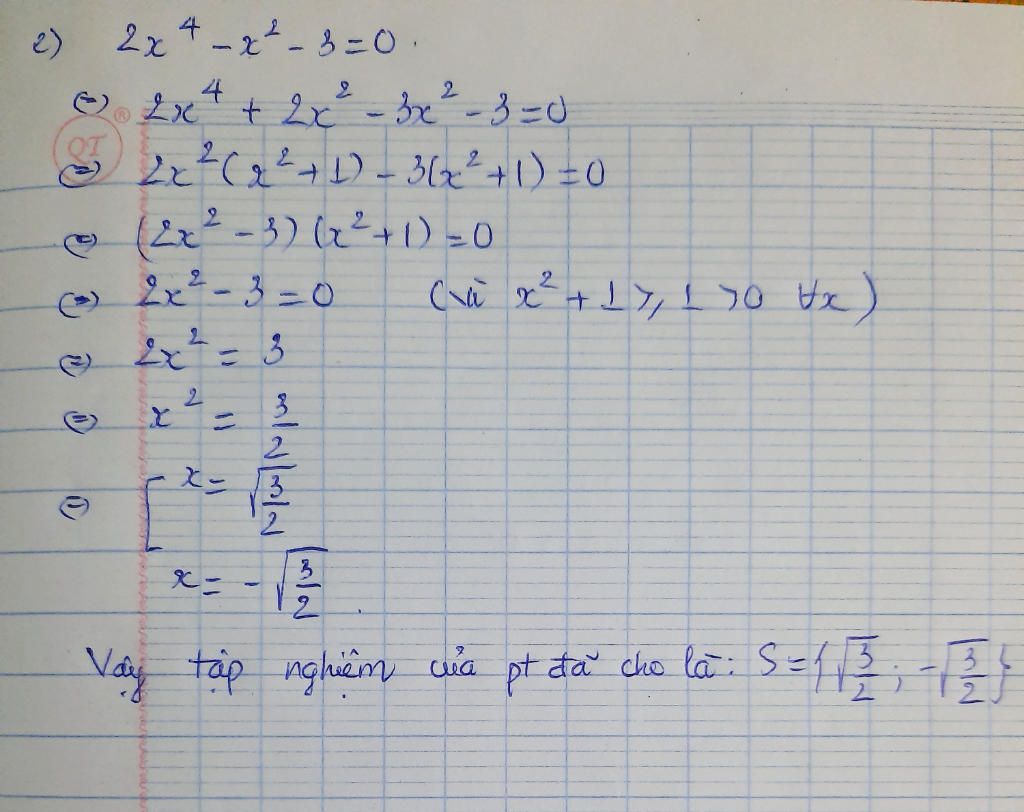 e) 2x⁴ - x² - 3 = 0.
⇔ 2x⁴ + 2x² - 3x² - 3 = 0
QT ®
⇔ 2x²(x² + 1) - 3(x² + 1) = 0
⇔ (2x² - 3)(x² + 1) = 0
⇔ 2x² - 3 = 0 (vì x² + 1 ≥ 1 > 0 ∀x)
⇔ 2x² = 3
⇔ x² = 3/2
⇔ [ x = √(3/2)
x = -√(3/2).
Vậy tập nghiệm của pt đã cho là: S = {√(3/2); -√(3/2)}